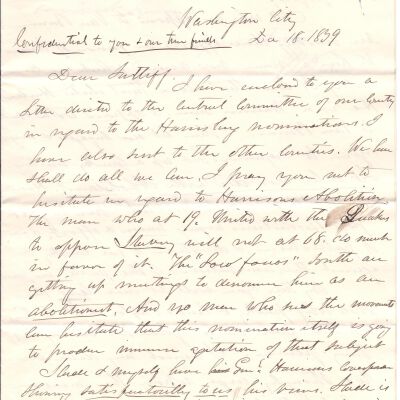 Washington City
Confidential to you & our true friends Dec 18. 1839
Dear Sutliff.
I have enclosed to you a
letter directed to the central Committee of our County
in regard to the Harrisburg nominations. I
have also sent to the other Counties. We
shall do all we can. I pray you not to
hesitate in regard to Harrisons Abolition.
The man who at 19. united with the Quakers
to oppose Slavery will not at 68. do much
in favor of it. The "Loco focos" South are
getting up meetings to denounce him as an
abolitionist. And no man who sees the movements
can hesitate that this nomination itself is going
to produce immense agitation of that subject
Slade & myself have Genl Harrisons
showing satisfactorily to us his views. Slade is